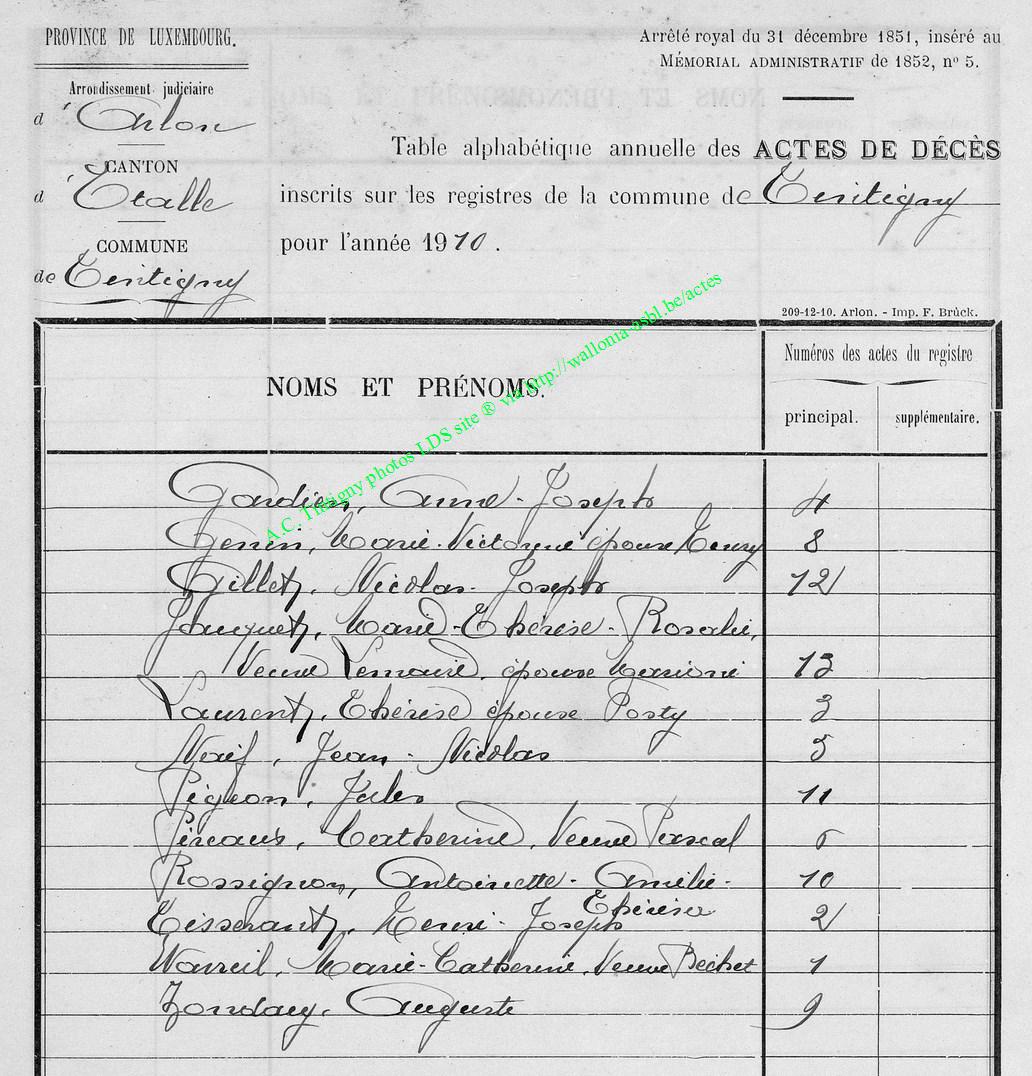 PROVINCE DE LUXEMBOURG.
Arrondissement judiciaire
d'Arlon
CANTON
d'Etalle
COMMUNE
de Tintigny
Arrêté royal du 31 décembre 1851, inséré au
MÉMORIAL ADMINISTRATIF de 1852, n° 5.
Table alphabétique annuelle des ACTES DE DÉCÈS
inscrits sur les registres de la commune de Tintigny
pour l'année 1910.
209-12-10. Arlon. - Imp. F. Brück.
NOMS ET PRÉNOMS.
Numéros des actes du registre
principal. supplémentaire.
A.C. Tintigny photos LDS site ® via http://wallonia-asbl.be/actes
Gardien, Anne-Joseph 4
Genin, Marie-Victorine épouse 8
Gillet, Nicolas-Joseph 12
Jacquet, Marie-Thérèse-Rosalie,
Veuve Lemaire, épouse 13
Laurent, Thérèse épouse Posty 3
Noël, Jean-Nicolas 5
Pigeon, Jules 11
Catherine, Veuve Pascal 6
Rossignon, Antoinette-Amélie- 10
Thérèse
Tisserant, Henri-Joseph 2
Marie-Catherine, Veuve Bechet 1
Auguste 9